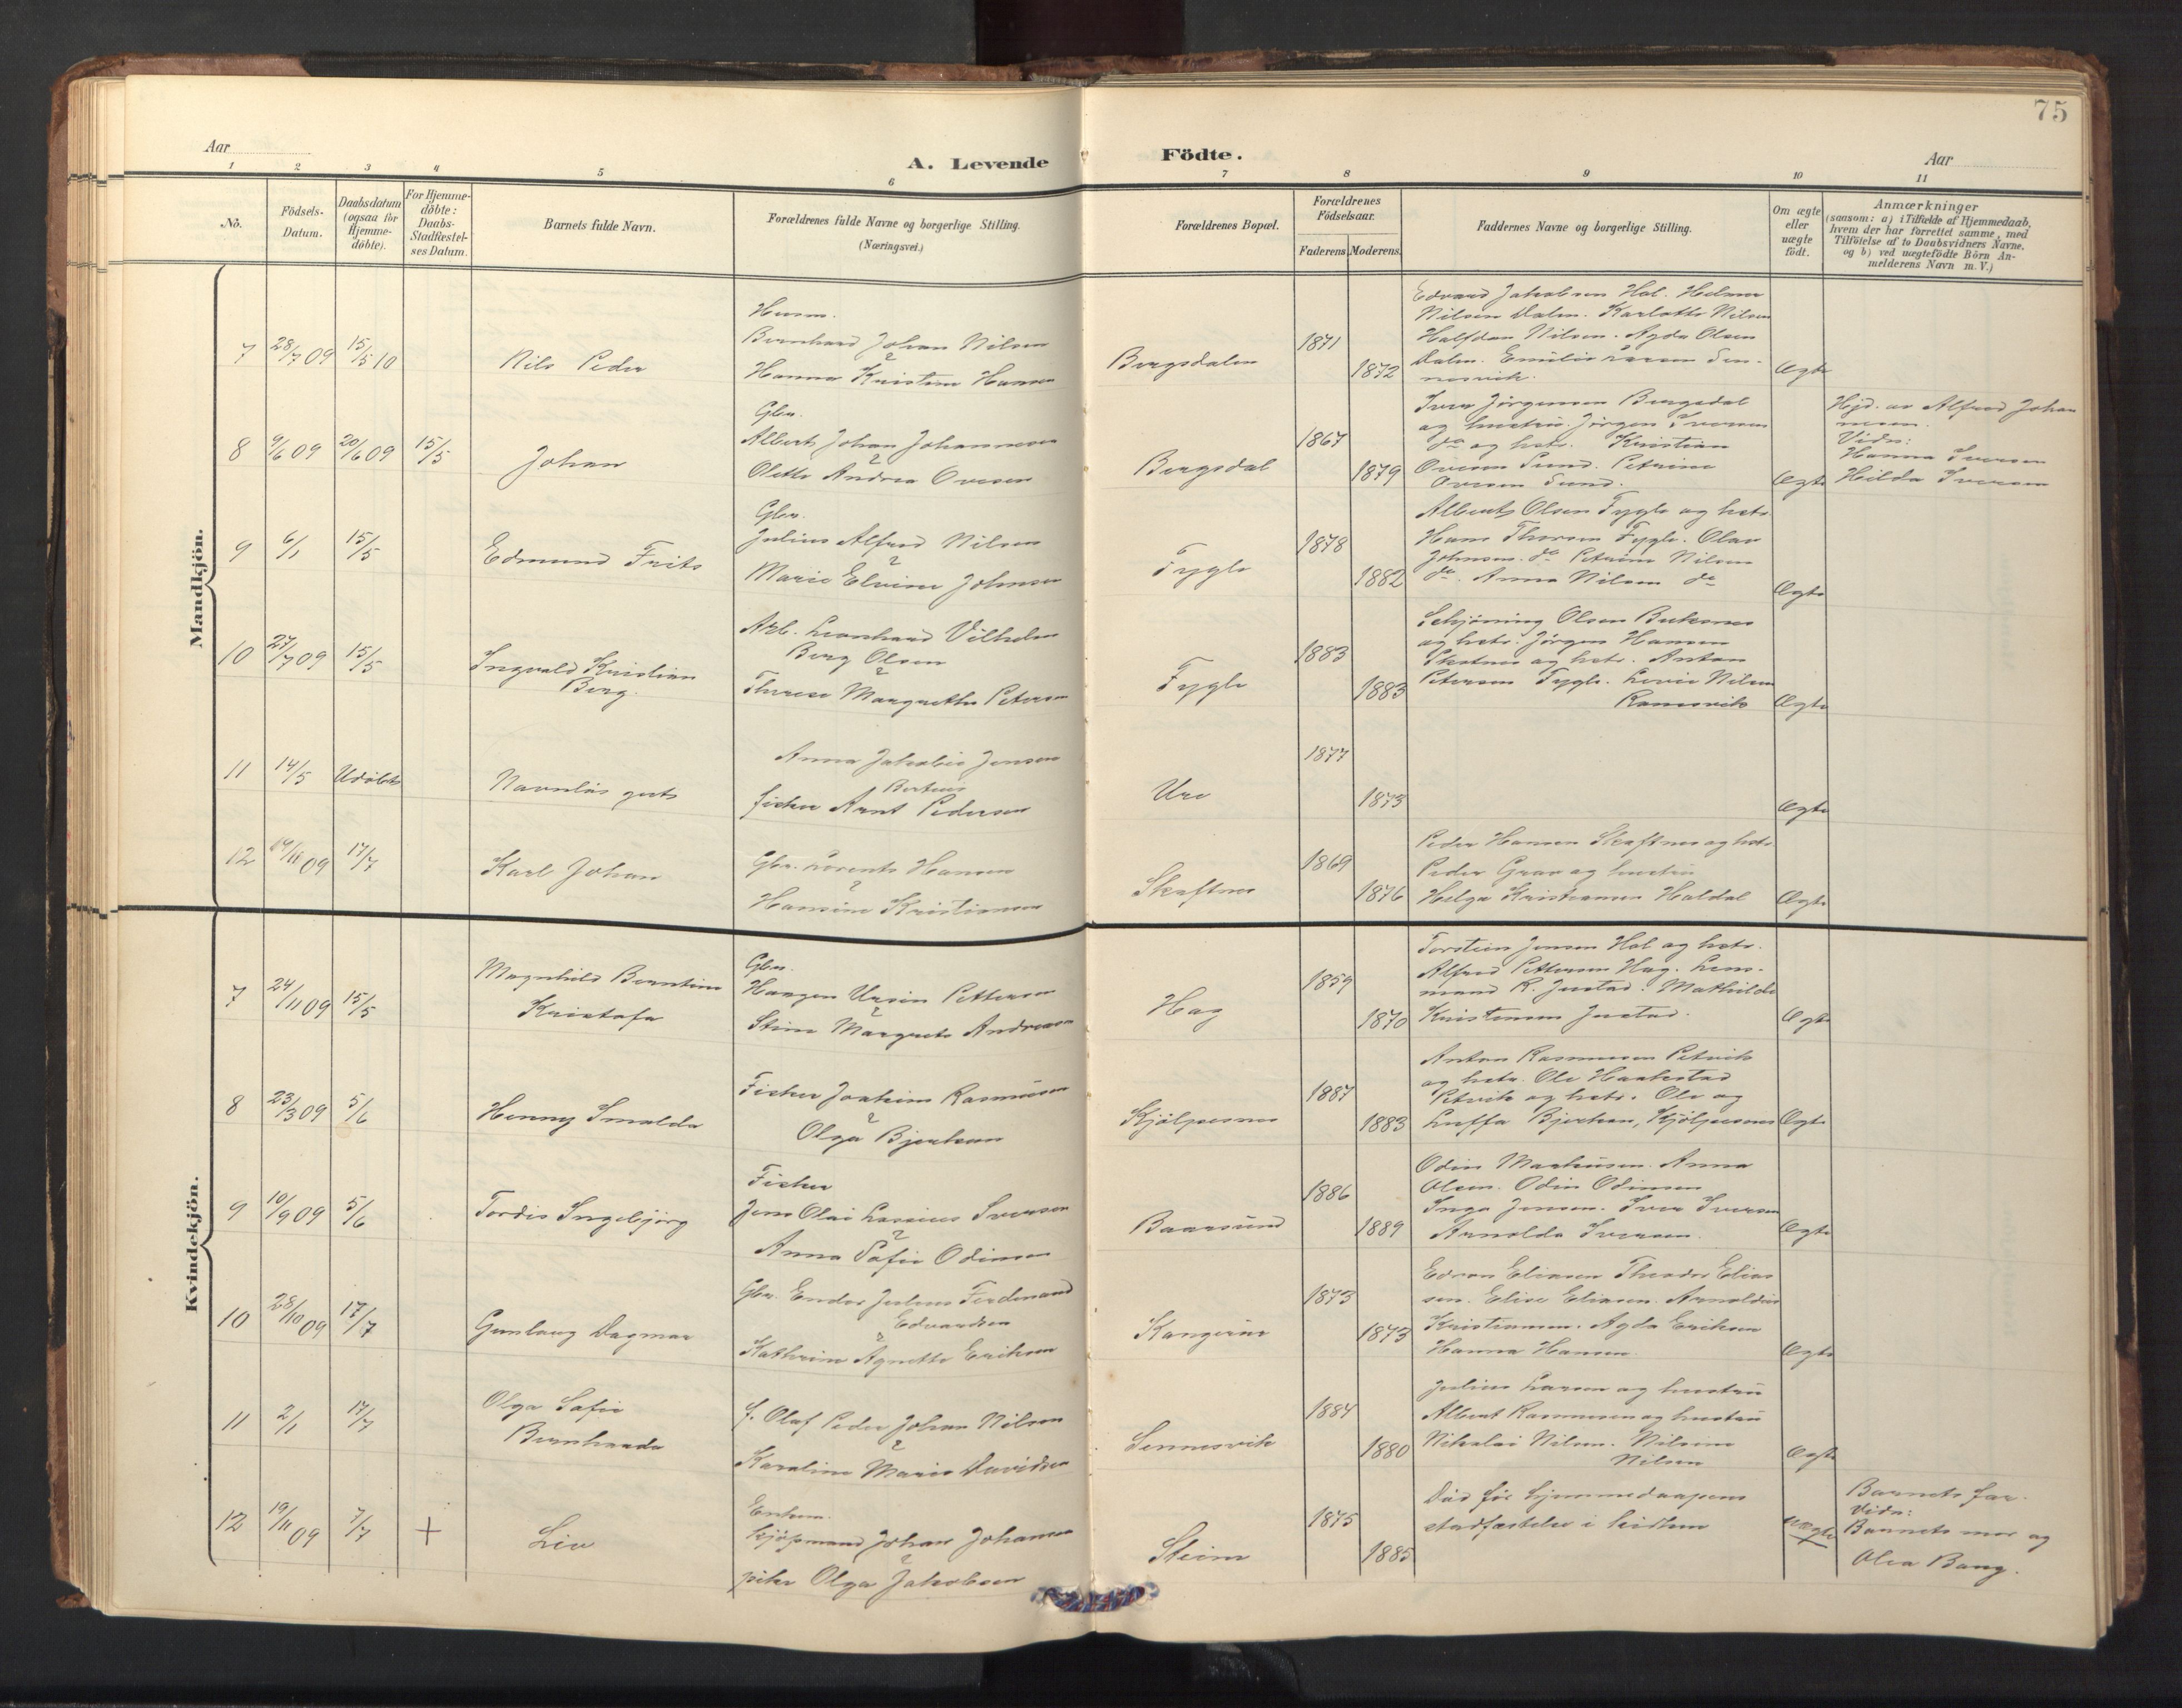 75
Aar
A. Levende Födte.
Aar
1 2 3 4 5 6 7 8 9 10 11
No.
Födsels-Datum.
Daabsdatum (ogsaa for Hjemme-döbte).
For Hjemme-döbte: Daabs-Stadfæstel-ses Datum.
Barnets fulde Navn.
Forældrenes fulde Navne og borgerlige Stilling. (Næringsvei.)
Forældrenes Bopæl.
Forældrenes Födselsaar.
Faderens. Moderens.
Faddernes Navne og borgerlige Stilling.
Om ægte eller uægte födt.
Anmærkninger
(saasom: a) i Tilfælde af Hjemmedaab,
hvem der har forrettet samme, med
Tilföielse af to Daabsvidners Navne,
og b) ved uægtefödte Börn An-
melderens Navn m. V.)
Mandkjön.
7 28/7 09 15/5 10
Nils Peder
Husm.
Bernhard Johan Nilsen
Hanna Kristine Hansen
Borgsdalen
1871
1872
Edvard Jakobsen Hol. Helmer
Nilsen Dalen. Karlotte Nilsen
Halfdan Nilsen. Agda Olsen
Dalen. Emilie Larsen Sen-
nesvik.
Ægte
8 9/6 09 20/6 09 15/5
Johan
Gbr.
Albert Johan Johannesen
Olette Andrea Ovesen
Borgsdal
1867
1879
Iver Jörgensen Borgsdal
og hustrü. Jörgen Iversen
do og hstr. Kristian
Ovesen Sund. Petrine
Ovesen Sund.
Ægte
Hjd. av Alfred Johan
nesen.
Vidn:
Hanna Iversen
Hilda Iversen
9 6/1 15/5
Edmund Frits
Gbr.
Julius Alfred Nilsen
Marie Elvine Johnsen
Fygle
1878
1882
Albert Olsen Fygle og hstr
Hans Thorsen Fygle. Olav
Johnsen do Petrine Nilsen
do. Anna Nilsen do
Ægte
10 27/7 09 15/5
Ingvald Kristian
Berg.
Arb. Leonhard Vilhelm
Berg Olsen
Therese Margrethe Petersen
Fygle
1883
1883
Schjöning Olsen Buksnes
og hstr. Jörgen Hansen
Skotnes og hstr. Anton
Petersen Fygle. Lovie Nilsen
Ramsvik
Ægte
11 14/5 Udöbt
Navnlös gut
Anna Jakobie Jensen
Berteus
fisker Arnt Pedersen
Ure
1877
1873
Ægte
12 14/11 09 17/7
Karl Johan
Gbr. Lorents Hansen
Hansine Kristiansen
Skaftnes
1869
1876
Peder Hansen Skaftnes og hstr
Peder Grav og hustrü
Helga Kristiansen Haldal
Ægte
Kvindekjön.
7 24/11 09 15/5
Magnhild Berntine
Kristofa
Gbr.
Haagen Ursin Pettersen
Stine Margrete Andreasen
Hag
1859
1870
Torstein Jensen Hol og hstr.
Alfred Pettersen Hag. Lens-
mand R. Justad. Mathilde
Kristensen Justad.
Ægte
8 23/3 09 5/6
Henny Imalda
Fisker Joakim Rasmüsen
Olga Bjerkan
Kjölpesnes
1887
1883
Anton Rasmussen Petvik
og hstr. Ole Haakstad
Petvik og hstr. Ole og
Luffa Bjerkan, Kjölpesnes
Ægte
9 10/9 09 5/6
Tordis Ingebjörg
Fisker
Jens Olai Lasaius Iversen
Anna Sofie Odinsen
Baarsünd
1886
1889
Odin Markusen. Anna
Olsen. Odin Odinsen
Inga Jensen. Iver Iversen
Arnolda Iversen.
Ægte
10 28/10 09 17/7
Gunlaug Dagmar
Gbr. Endor Julius Ferdinand
Edvardsen
Kathrine Agnethe Eriksen
Kangerür
1873
1873
Edvon Eliasen Theodor Elias
sen. Elise Eliasen. Arnoldus
Kristiansen. Agda Eriksen
Hanna Hansen.
Ægte
11 2/1 17/7
Olga Sofie
Bernharda
f. Olaf Peder Johan Nilsen
Karoline Marie Davidsen
Sennesvik
1884
1880
Julius Larsen og hustrü
Albert Rasmussen og hustrü
Nikolai Nilsen. Nilsine
Nilsen
Ægte
12 19/11 09 7/7 +
Liv
Enkem.
kjöpmand Johan Johansen
pike Olga Jakobsen
Steine
1875
1885
Död för hjemmedaapens
stadfæstelse i kirken
uægte
Barnets far.
Vidn:
Barnets mor og
Olea Bang.